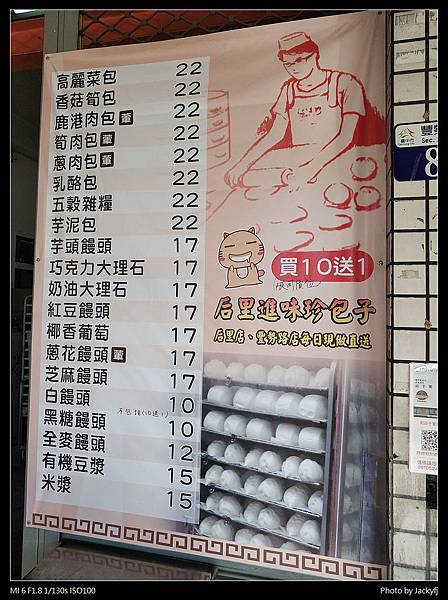 高麗菜包 22
香菇筍包 22
鹿港肉包 葷 22
筍肉包 葷 22
蔥肉包 葷 22
乳酪包 22
五穀雜糧 22
芋泥包 22
芋頭饅頭 17
巧克力大理石 17
奶油大理石 17
紅豆饅頭 17
椰香葡萄 17
蔥花饅頭 葷 17
芝麻饅頭 17
白饅頭 10
不包括(10送1)
黑糖饅頭 10
全麥饅頭 12
有機豆漿 15
米漿 15
買10送1
后里進味珍包子
后里店、豐勢路店每日現做直送
豐
Sec.
8
MI 6 F1.8 1/130s ISO100
Photo by Jackyfj